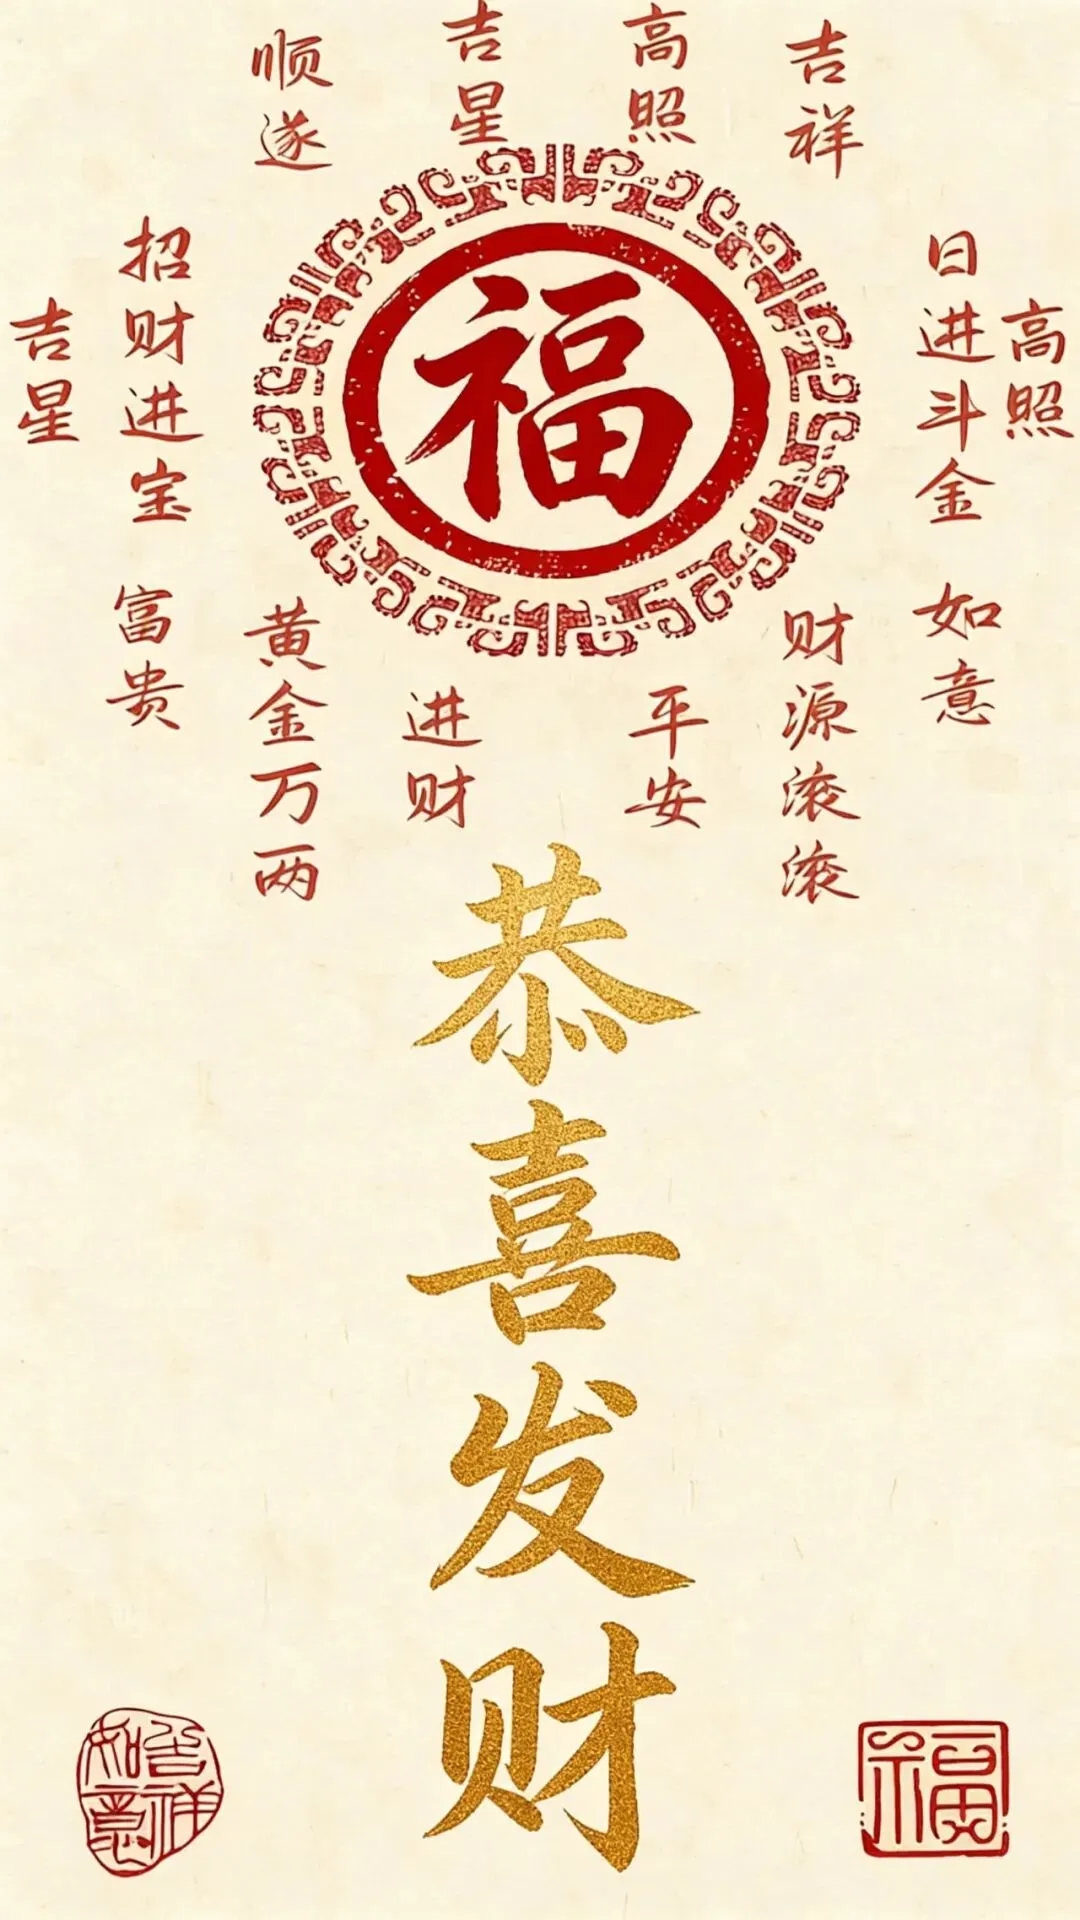 顺遂
吉星
高照
吉祥
吉星
招财进宝
福
日进斗金
高照
富贵
黄金万两
进财
平安
财源滚滚
如意
恭喜发财
吉祥如意
福